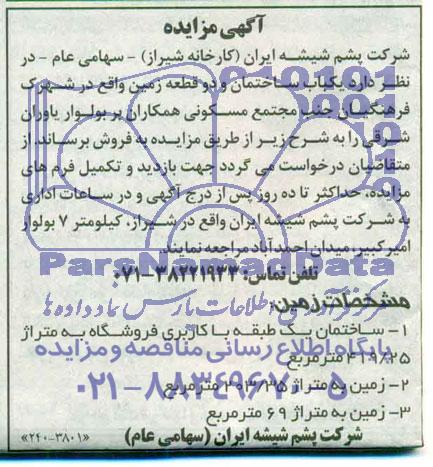 آگهی مزایده
شرکت پشم شیشه ایران (کارخانه شیراز) - سهامی عام - در
نظر دارد یکباب ساختمان و دو قطعه زمین واقع در شهرک
فرهنگیان جنب مجتمع مسکونی همکاران پر بولوار یاوران
شرقی را به شرح زیر از طریق مزایده به فروش برساند. از
متقاضیان درخواست می گردد جهت بازدید و تکمیل فرم های
مزایده، حداکثر تا ده روز پس از درج آگهی و در ساعات اداری
به شرکت پشم شیشه ایران واقع در شیراز، کیلومتر ۷ بولوار
امیرکبیر، میدان احمدآباد مراجعه نمایند.
ParsNamadData
تلفن تماس: ۳۸۲۲۱۹۳۳-۰۷۱
مشخصات زمین:
۱- ساختمان یک طبقه با کاربری فروشگاه به متراژ
۴۱۹/۲۵ مترمربع
پایگاه اطلاع رسانی مناقصه و مزایده
۲- زمین به متراژ ۲۰۳/۳۵ مترمربع
۰۲۱-۸۸۳۴۹۶۷۰-۵
۳- زمین به متراژ ۶۹ مترمربع
شرکت پشم شیشه ایران (سهامی عام)
«۲۴۰-۳۸۰۱»